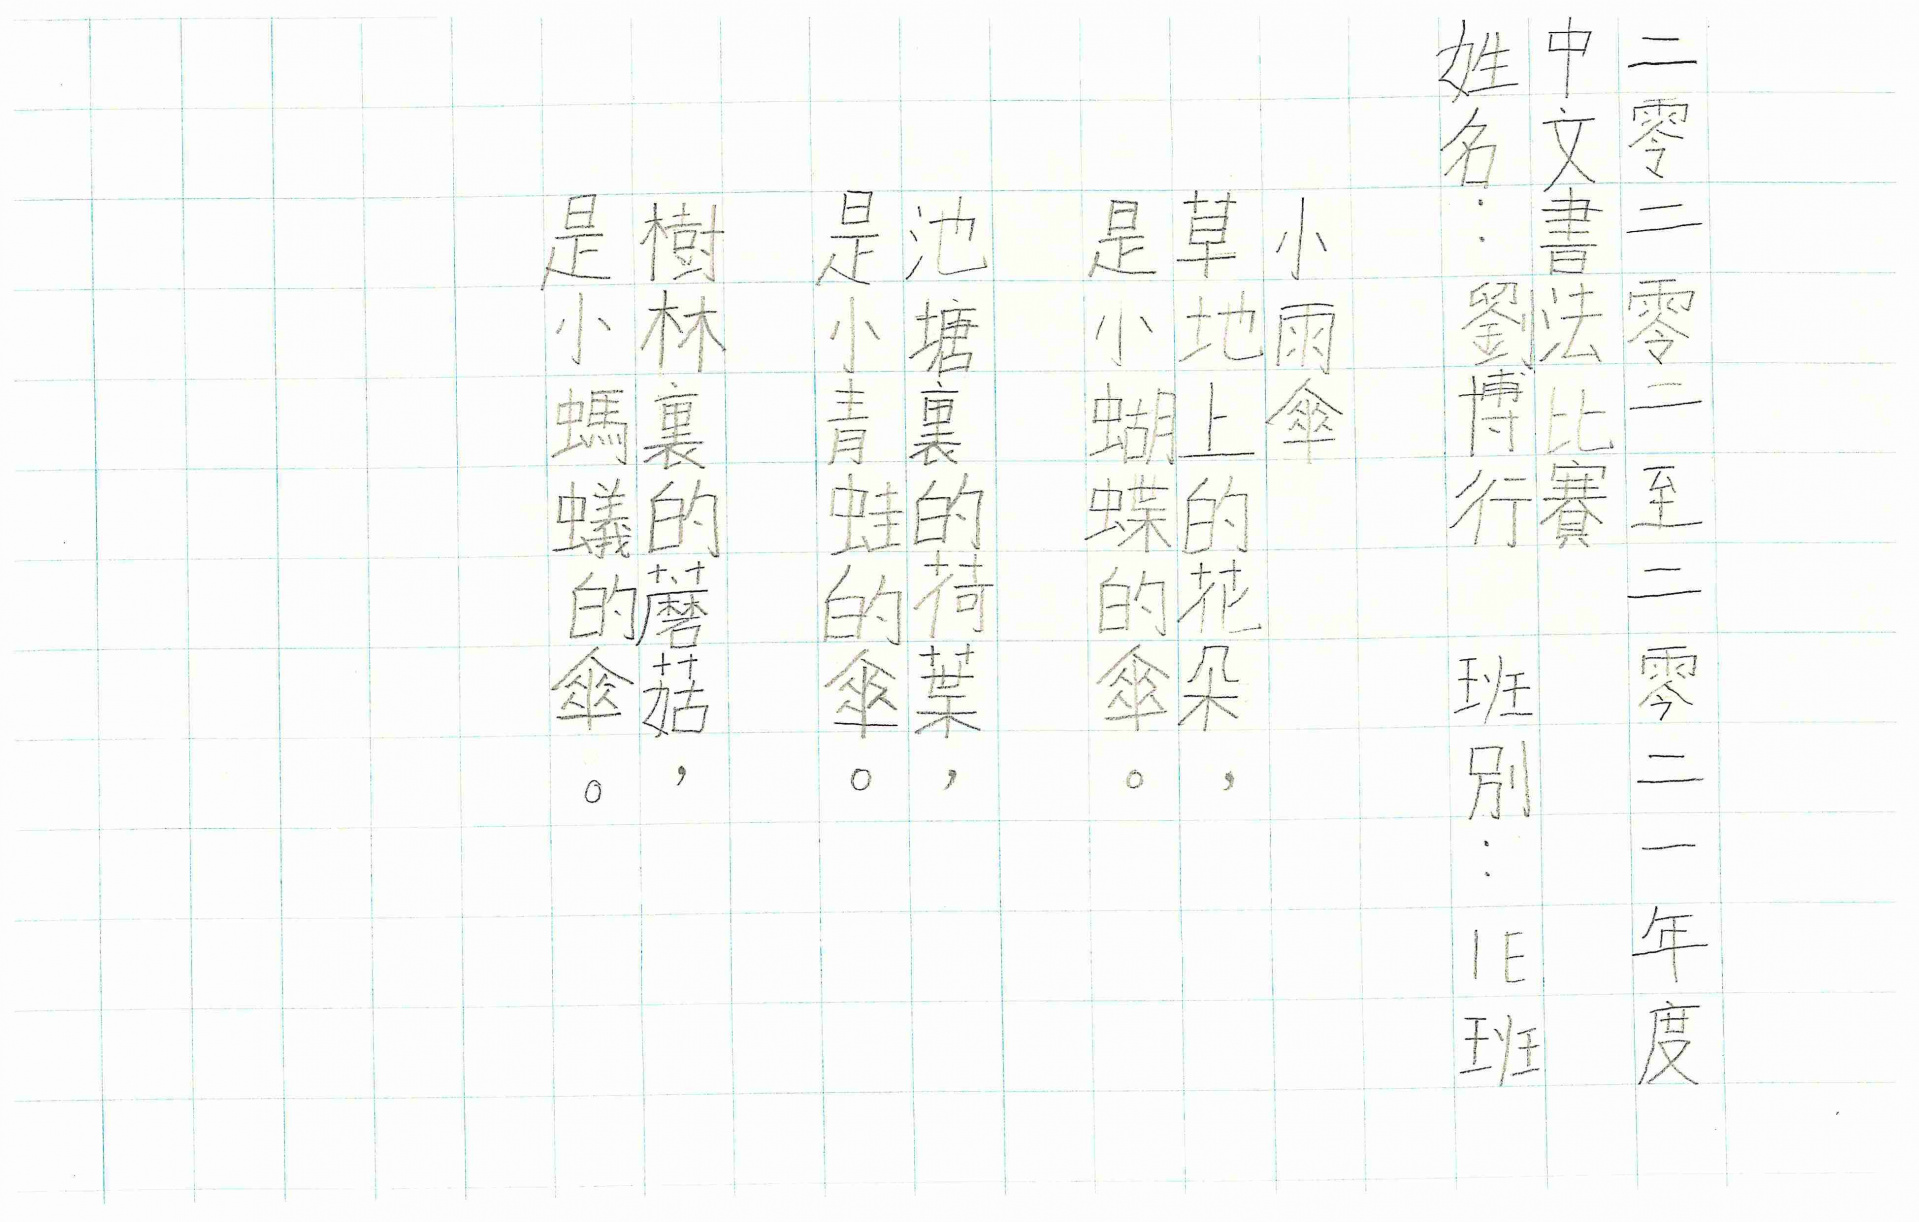 二零二零二至二零二一年度
中文書法比賽
姓名：劉博行 班別：1E班
小雨傘
草地上的花朵，
是小蝴蝶的傘。
池塘裏的荷葉，
是小青蛙的傘。
樹林裏的蘑菇，
是小螞蟻的傘。